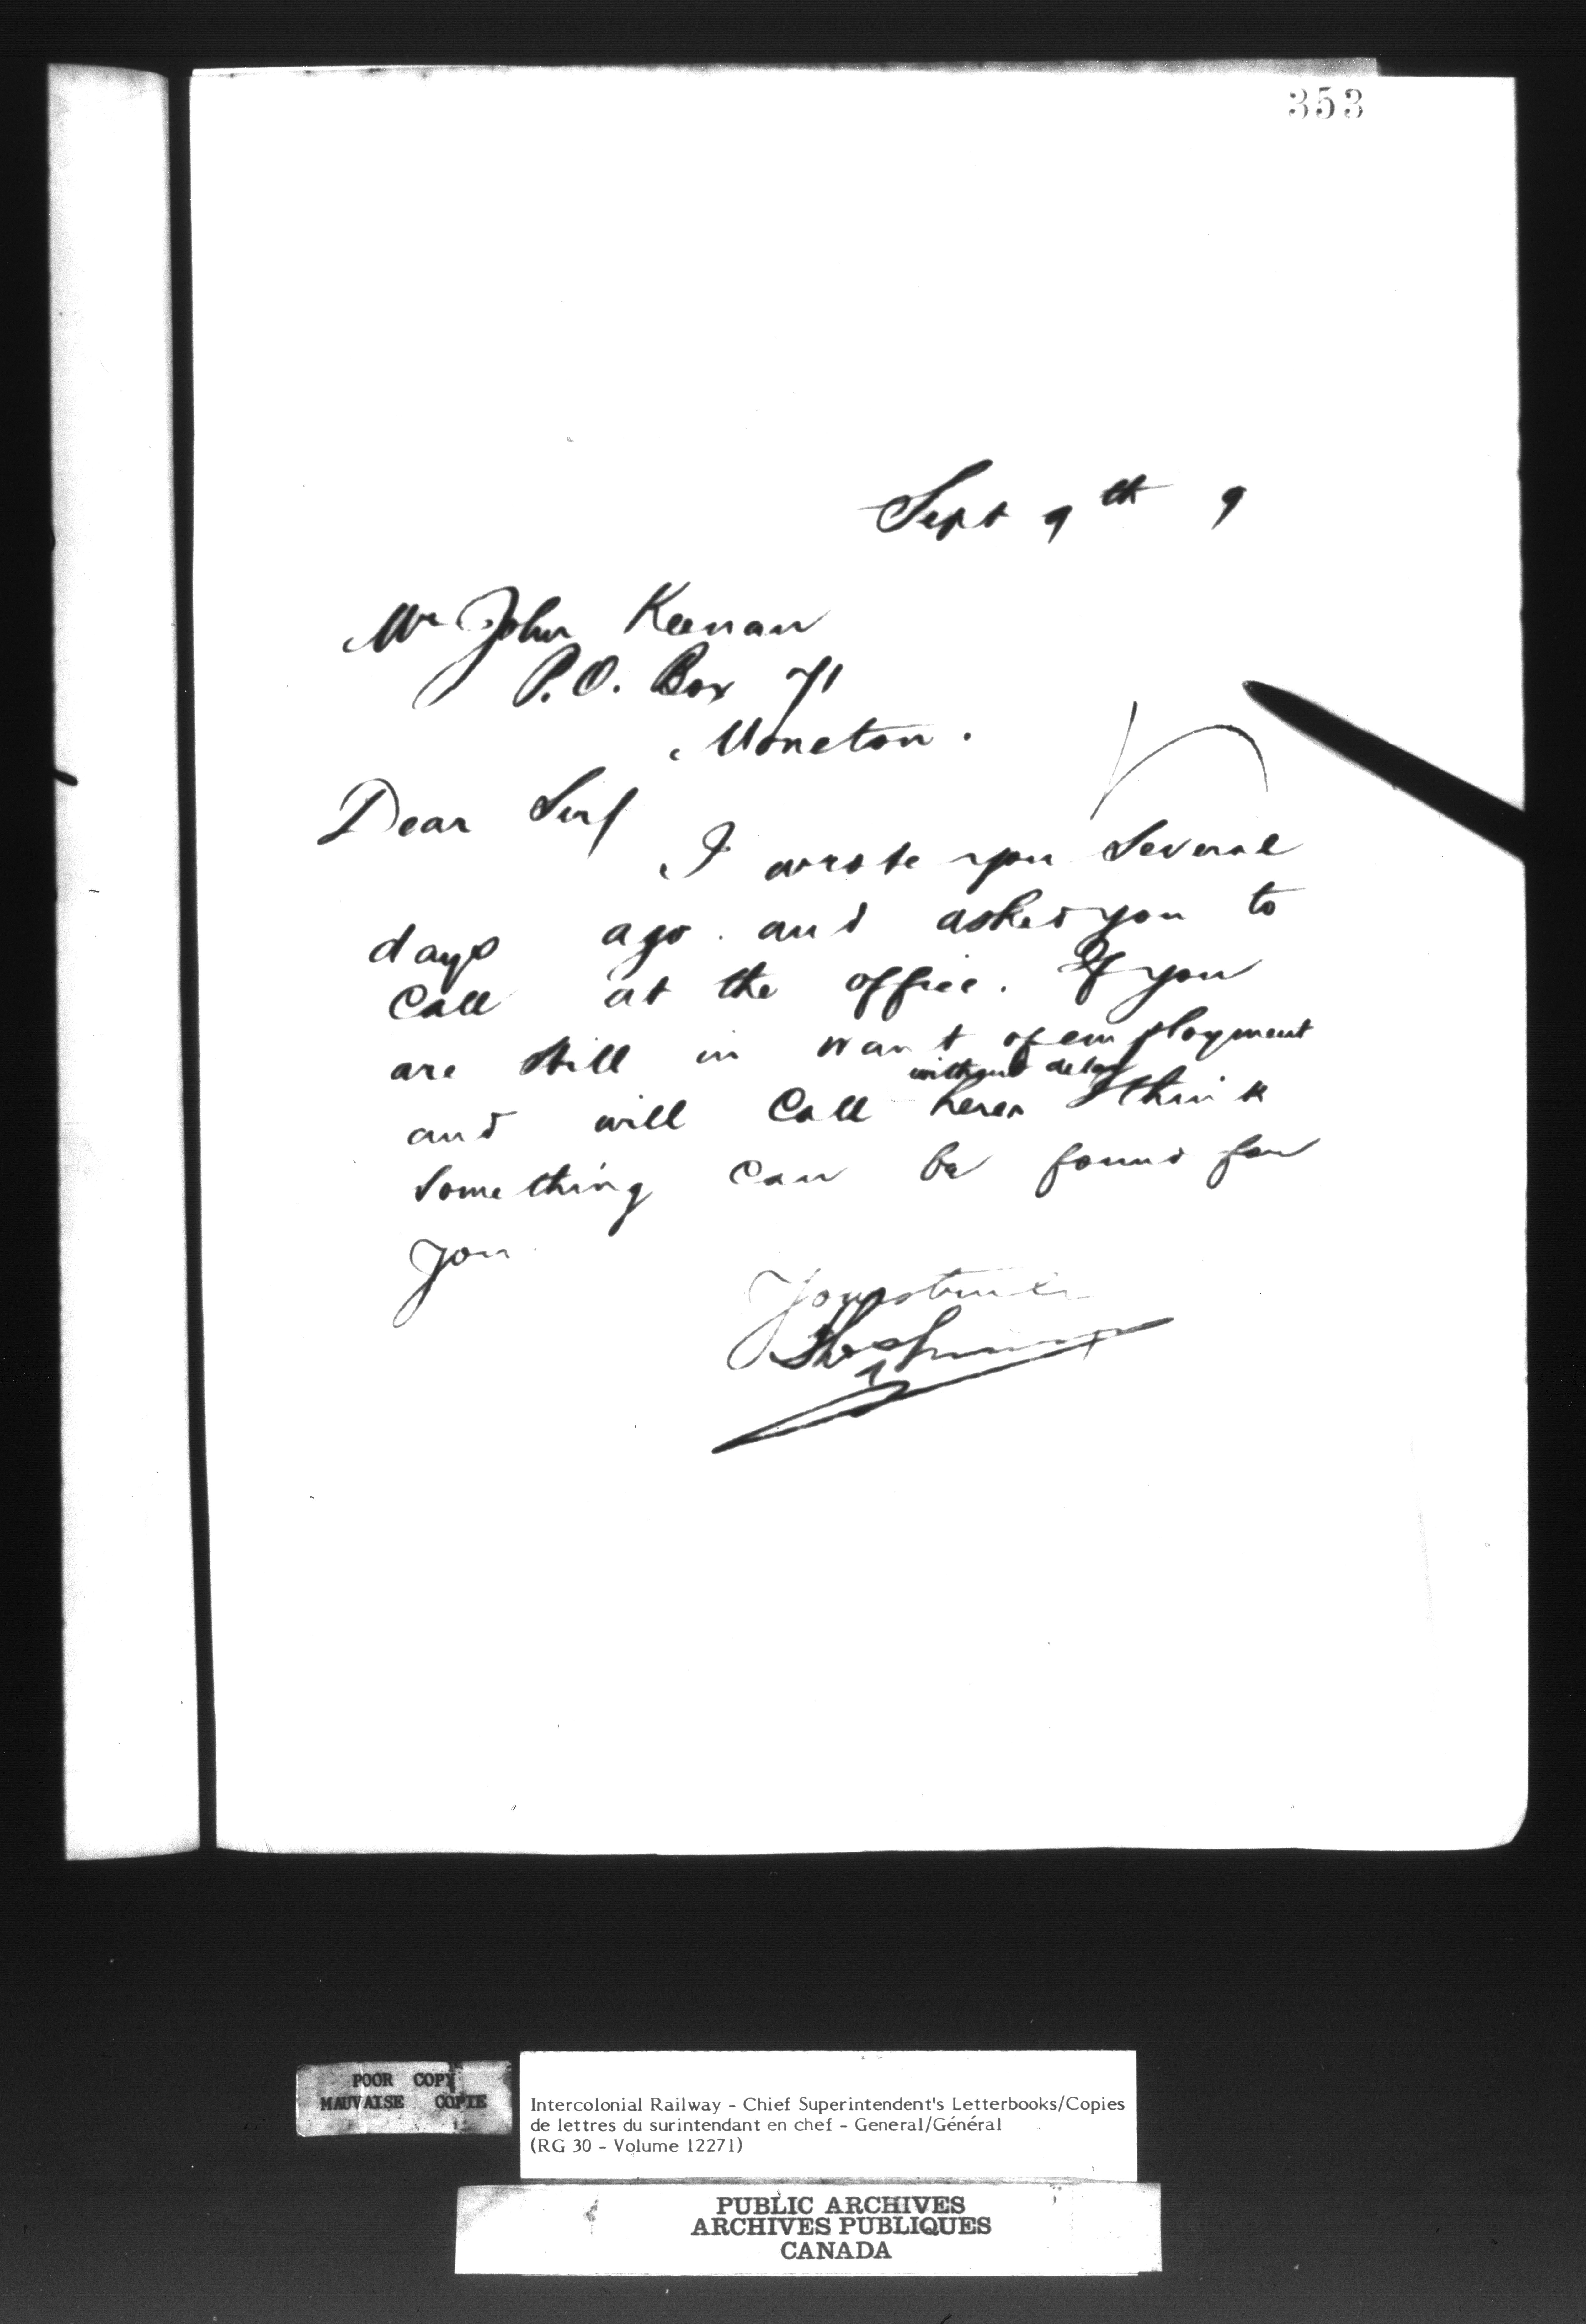 353
Sept 9th 9
Mr John Keenan
P.O. Box 71
Moncton.
Dear Sir/
I wrote you several
days ago. and asked you to
Call at the office. If you
are still in want of employment
without delay
and will Call here I think
something can be found for
you.
Yours truly
POOR COPY
MAUVAISE COPIE
Intercolonial Railway - Chief Superintendent's Letterbooks/Copies
de lettres du surintendant en chef - General/Général
(RG 30 - Volume 12271)
PUBLIC ARCHIVES
ARCHIVES PUBLIQUES
CANADA